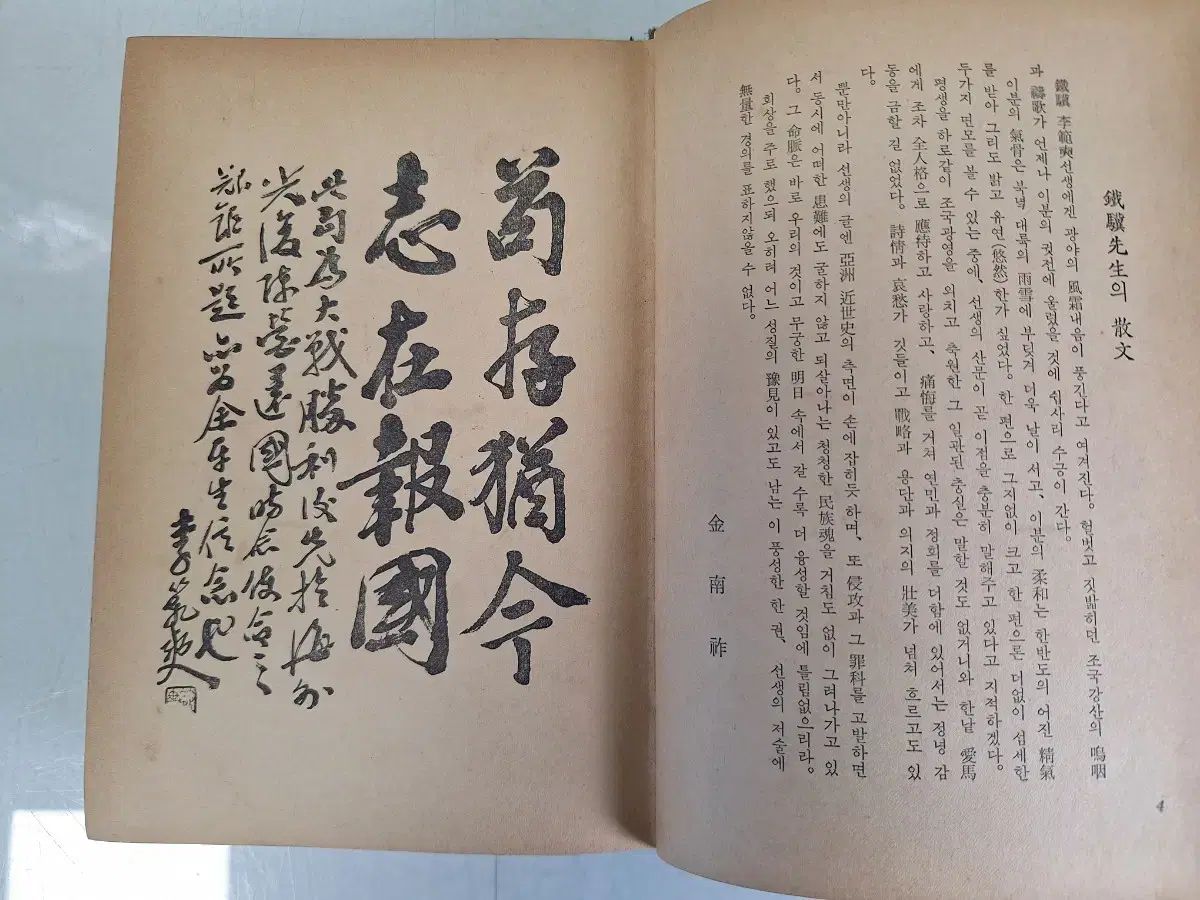 鐵驥先生의 散文
鐵驥 李範奭선생에겐 광야의 風霜내음이 풍긴다고 여겨진다. 헐벗고 짓밟히던 조국강산의 嗚咽
과 禱歌가 언제나 이분의 귓전에 울렸을 것에 쉽사리 수긍이 간다.
이분의 氣骨은 북녘 대륙의 雨雪에 부딪겨 더욱 날이 서고, 이분의 柔和는 한반도의 어진 精氣
를 받아 그리도 밝고 유연(悠然)한가 싶었다. 한 편으로 그지없이 크고 한 편으론 더없이 섬세한
두가지 면모를 볼 수 있는 중에, 선생의 산문이 곧 이전을 충분히 말해주고 있다고 지적하겠다.
평생을 하로같이 조국광영을 외치고 축원한 그 일관된 충심은 말할 것도 없거니와 한낱 愛馬
에게 조차 全人格으로 應待하고 사랑하고, 痛悔를 거쳐 연민과 정회를 더함에 있어서는 정녕 감
동을 금할 길 없었다. 詩情과 哀愁가 깃들이고 戰略과 용단과 의지의 壯美가 넘쳐 흐르고도 있
다.
뿐만아니라 선생의 글엔 亞洲 近世史의 측면이 손에 잡히듯 하며, 또 侵攻과 그 罪科를 고발하면
서 동시에 어떠한 患難에도 굴하지 않고 되살아나는 청청한 民族魂을 거침도 없이 그려나가고 있
다. 그 命脈은 바로 우리의 것이고 무궁한 明日 속에서 갈 수록 더 융성할 것임에 틀림없으리라.
회상을 주로 했으되 오히려 어느 성질의 豫見이 있고도 남는 이 풍성한 한 권, 선생의 저술에
無量한 경의를 표하지않을 수 없다.
金南祚
4
苟存猶今
志在報國
此句為大戰勝利後先於海外
光復陣營還國時念使命之
艱鉅所題亦為余平生信念也
李範奭